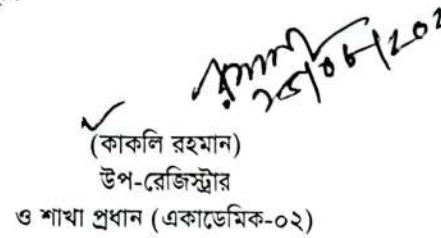 (কাকলি রহমান)
উপ-রেজিস্ট্রার
ও শাখা প্রধান (একাডেমিক-০২)